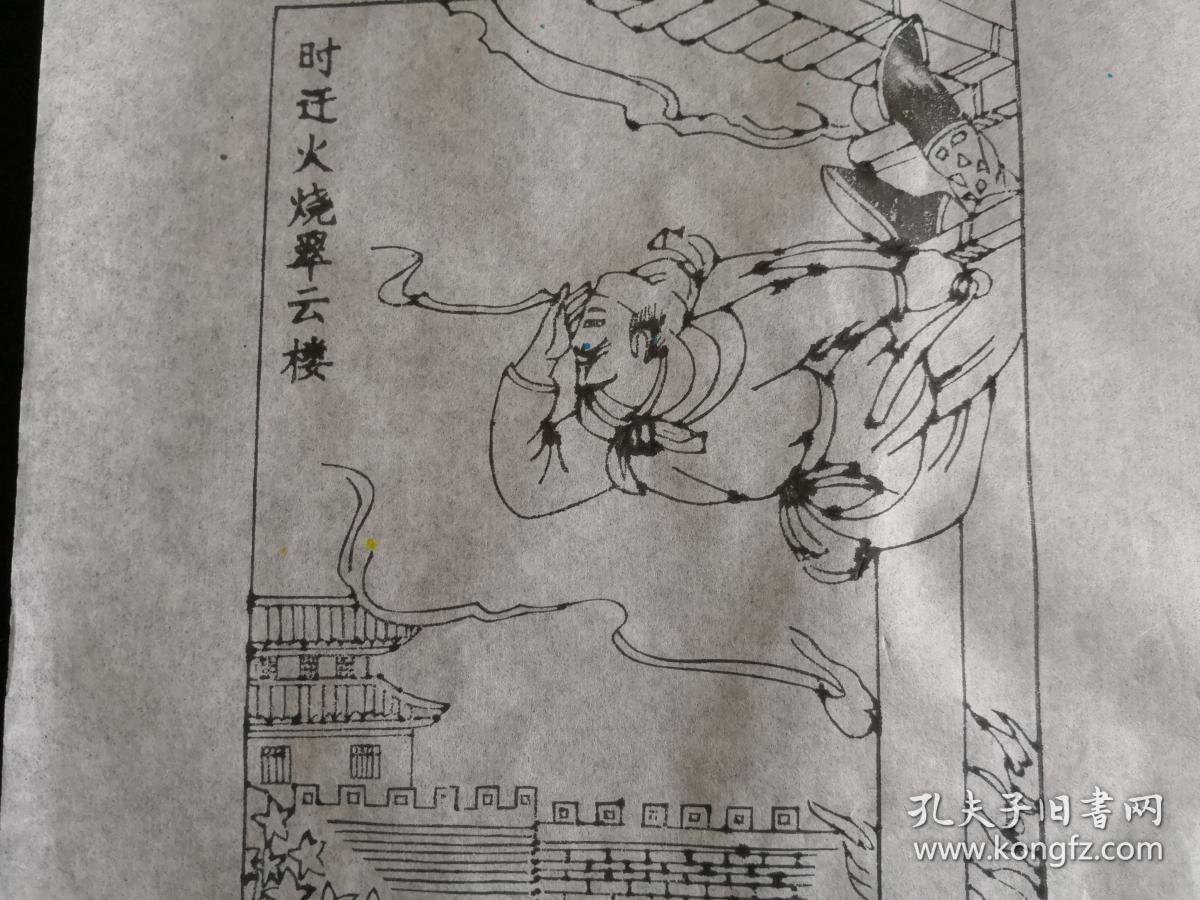 时迁火烧翠云楼
孔夫子旧書网
www.kongfz.com